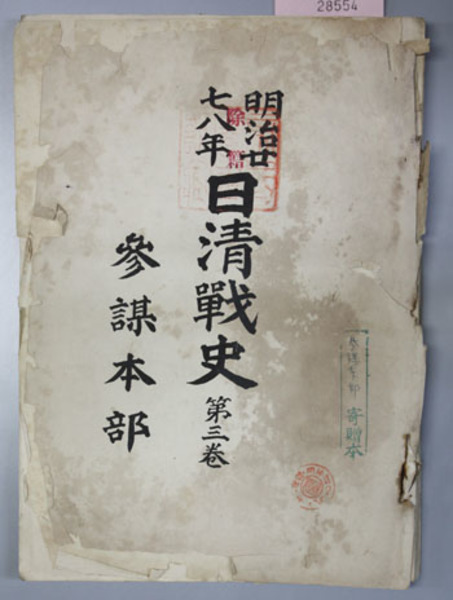 28554
明治廿
七八年
日清戰史 第三卷
參謀本部
除籍
參謀本部 寄贈本